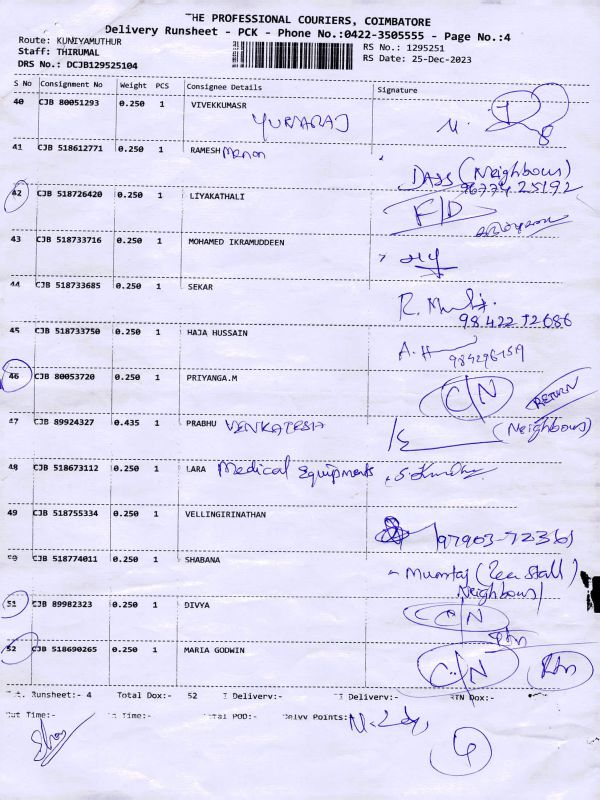 THE PROFESSIONAL COURIERS, COIMBATORE
Delivery Runsheet - PCK - Phone No.:0422-3505555 - Page No.:4
Route: KUNIYAMUTHUR
RS No.: 1295251
Staff: THIRUMAL
RS Date: 25-Dec-2023
DRS No.: DCJB129525104
S No Consignment No Weight PCS Consignee Details Signature
40 CJB 80051293 0.250 1 VIVEKKUMASR
YUBARAJ
41 CJB 518612771 0.250 1 RAMESH Menon
DASS (Neighbour)
96774 25192
42 CJB 518726420 0.250 1 LIYAKATHALI F/D
43 CJB 518733716 0.250 1 MOHAMED IKRAMUDDEEN
44 CJB 518733685 0.250 1 SEKAR
98422 72686
45 CJB 518733750 0.250 1 HAJA HUSSAIN
46 CJB 80053720 0.250 1 PRIYANGA.M C/N RETURN
47 CJB 89924327 0.435 1 PRABHU VENKATESH (Neighbour)
48 CJB 518673112 0.250 1 LARA Medical Equipments
49 CJB 518755334 0.250 1 VELLINGIRINATHAN
97903-72361
50 CJB 518774011 0.250 1 SHABANA Mumtaj (Tea Stall)
Neighbour
51 CJB 89982323 0.250 1 DIVYA C/N
Rtn
52 CJB 518690265 0.250 1 MARIA GODWIN C/N Rtn
Runsheet:- 4 Total Dox:- 52 Delivery:- Delivery:- RTN Dox:-
Out Time:- In Time:- Total POD:- Delvy Points:-